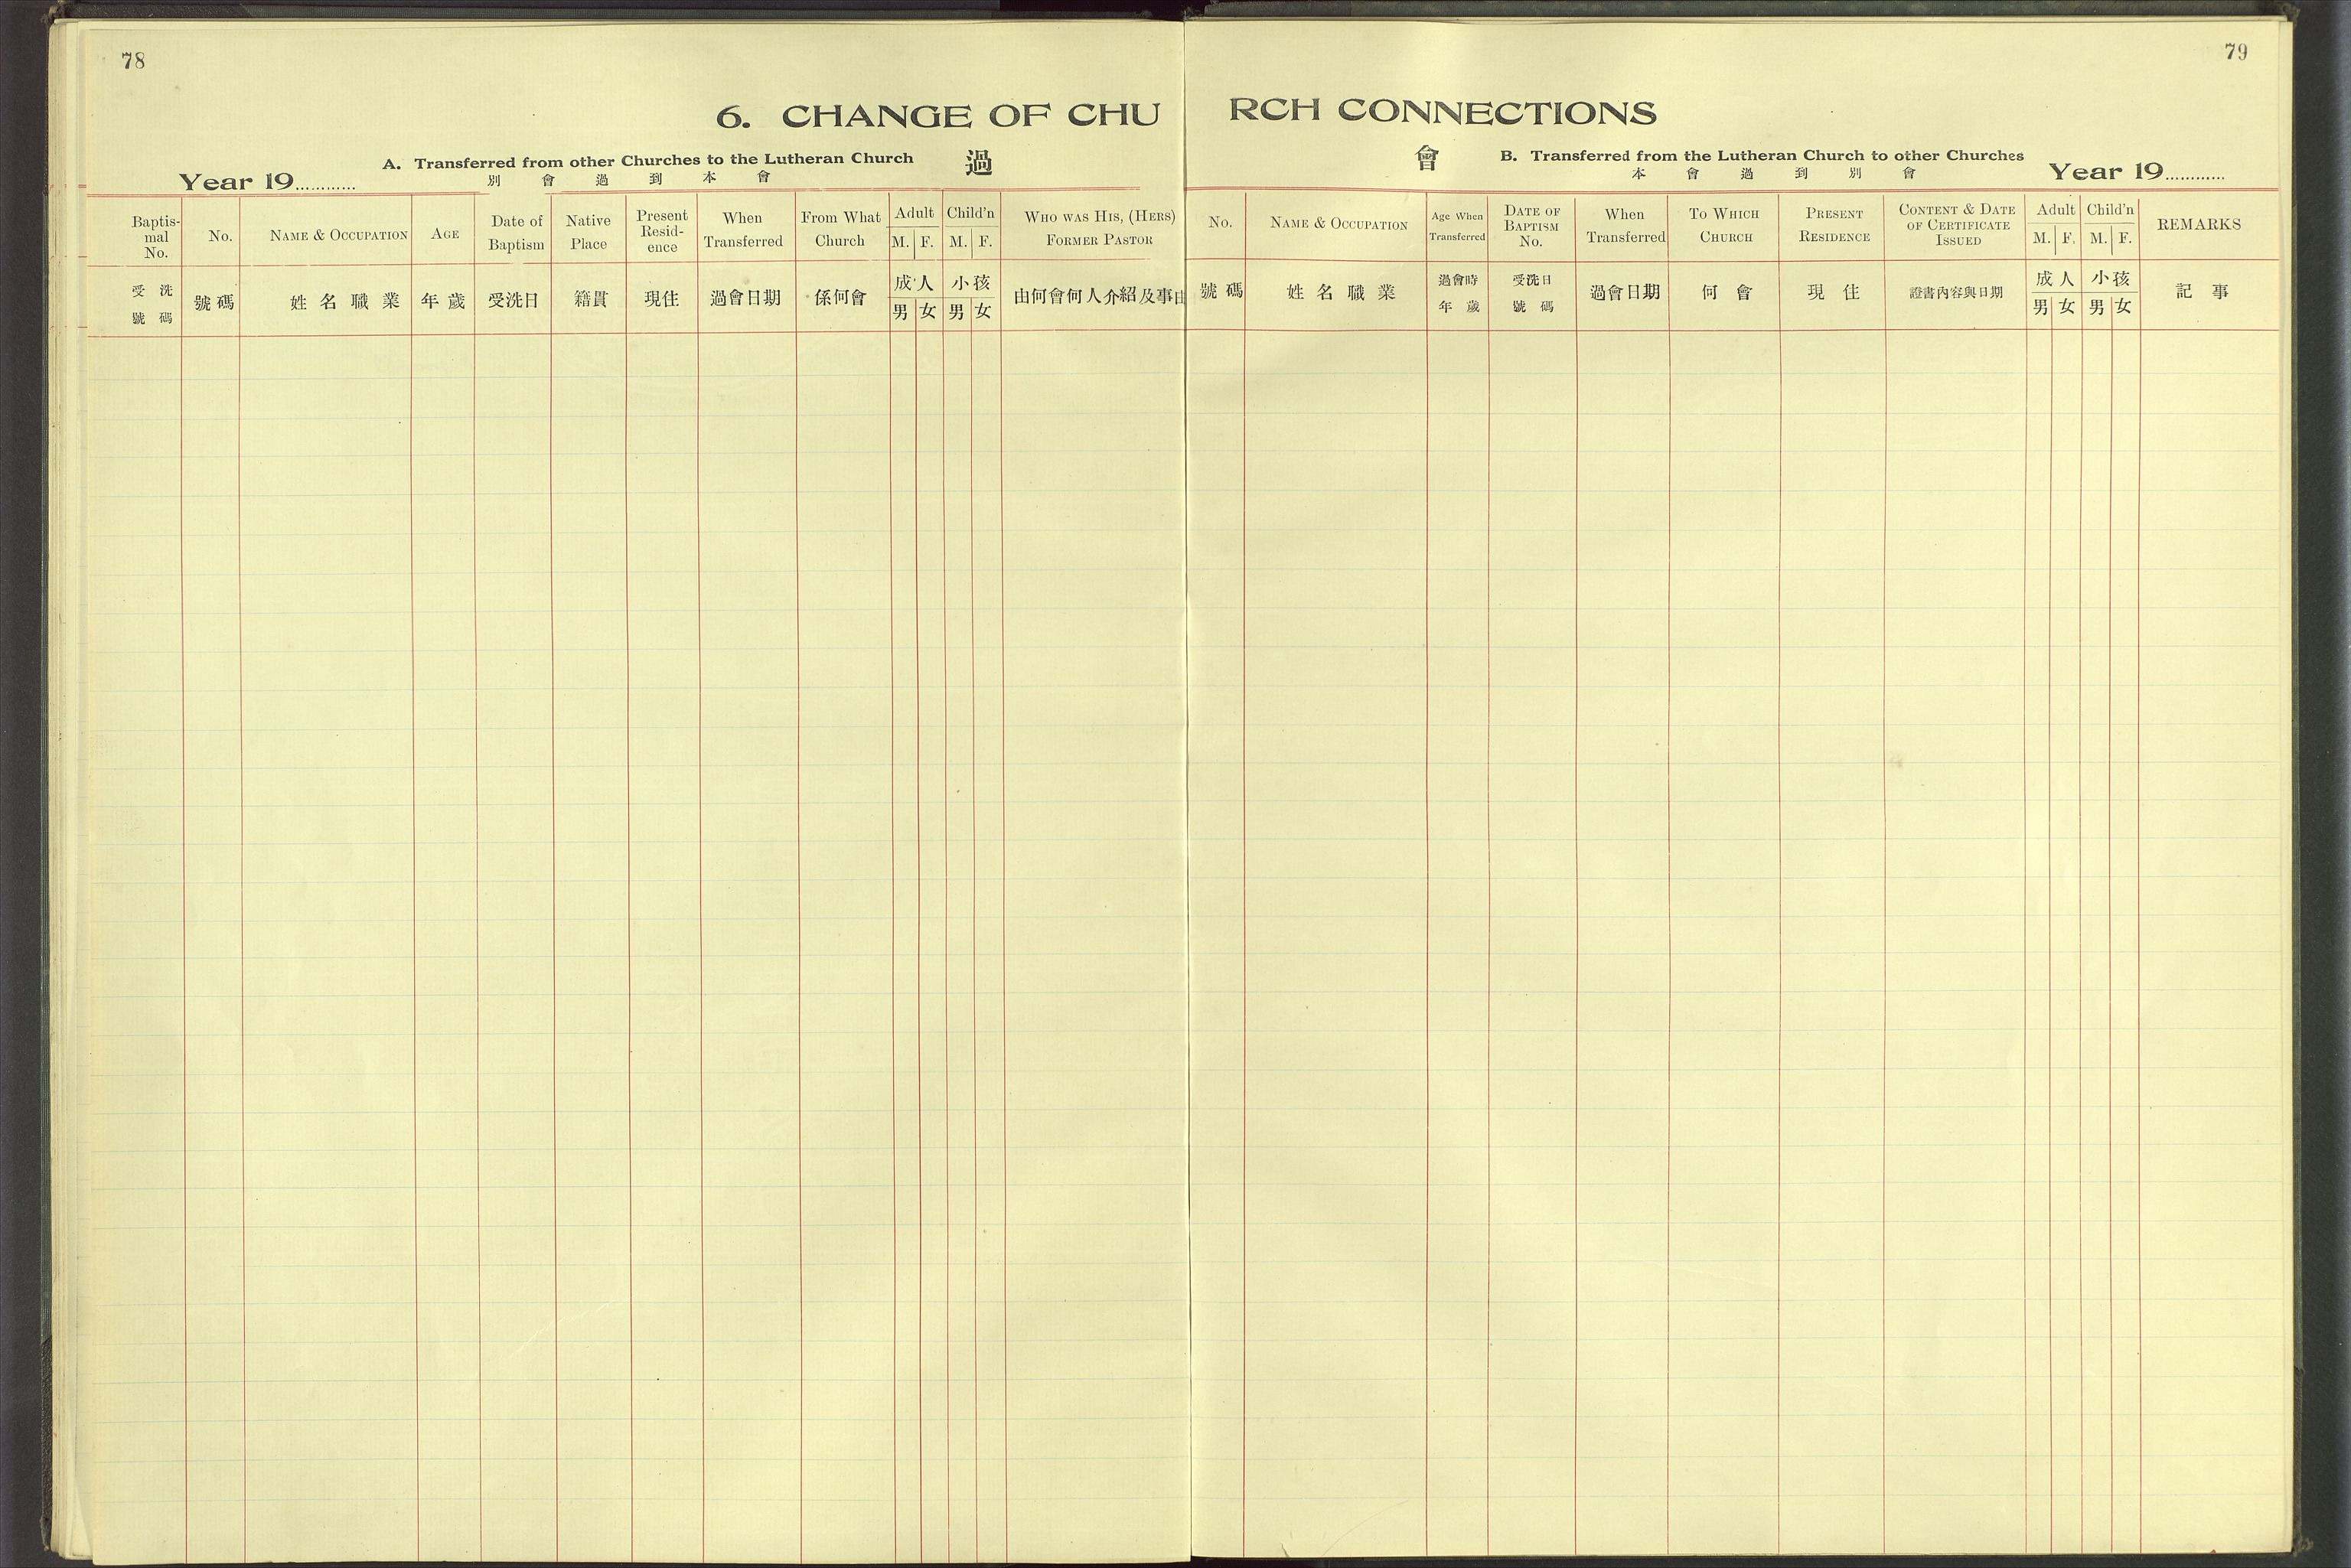 78
79
6. CHANGE OF CHU RCH CONNECTIONS
Year 19............
A. Transferred from other Churches to the Lutheran Church
別 會 過 到 本 會
過
會
B. Transferred from the Lutheran Church to other Churches
本 會 過 到 別 會
Year 19............
Baptis-
mal
No.
No.
NAME & OCCUPATION
AGE
Date of
Baptism
Native
Place
Present
Resid-
ence
When
Transferred
From What
Church
Adult
M. F.
Child'n
M. F.
WHO WAS HIS, (HERS)
FORMER PASTOR
受 洗
號 碼
號 碼
姓 名 職 業
年 歲
受洗日
籍貫
現住
過會日期
係何會
成人
男 女
小孩
男 女
由何會何人介紹及事由
No.
NAME & OCCUPATION
Age When
Transferred
DATE OF
BAPTISM
No.
When
Transferred
TO WHICH
CHURCH
PRESENT
RESIDENCE
CONTENT & DATE
OF CERTIFICATE
ISSUED
Adult
M. F.
Child'n
M. F.
REMARKS
號 碼
姓 名 職 業
過會時
年 歲
受洗日
號 碼
過會日期
何 會
現 住
證書內容與日期
成人
男 女
小孩
男 女
記 事